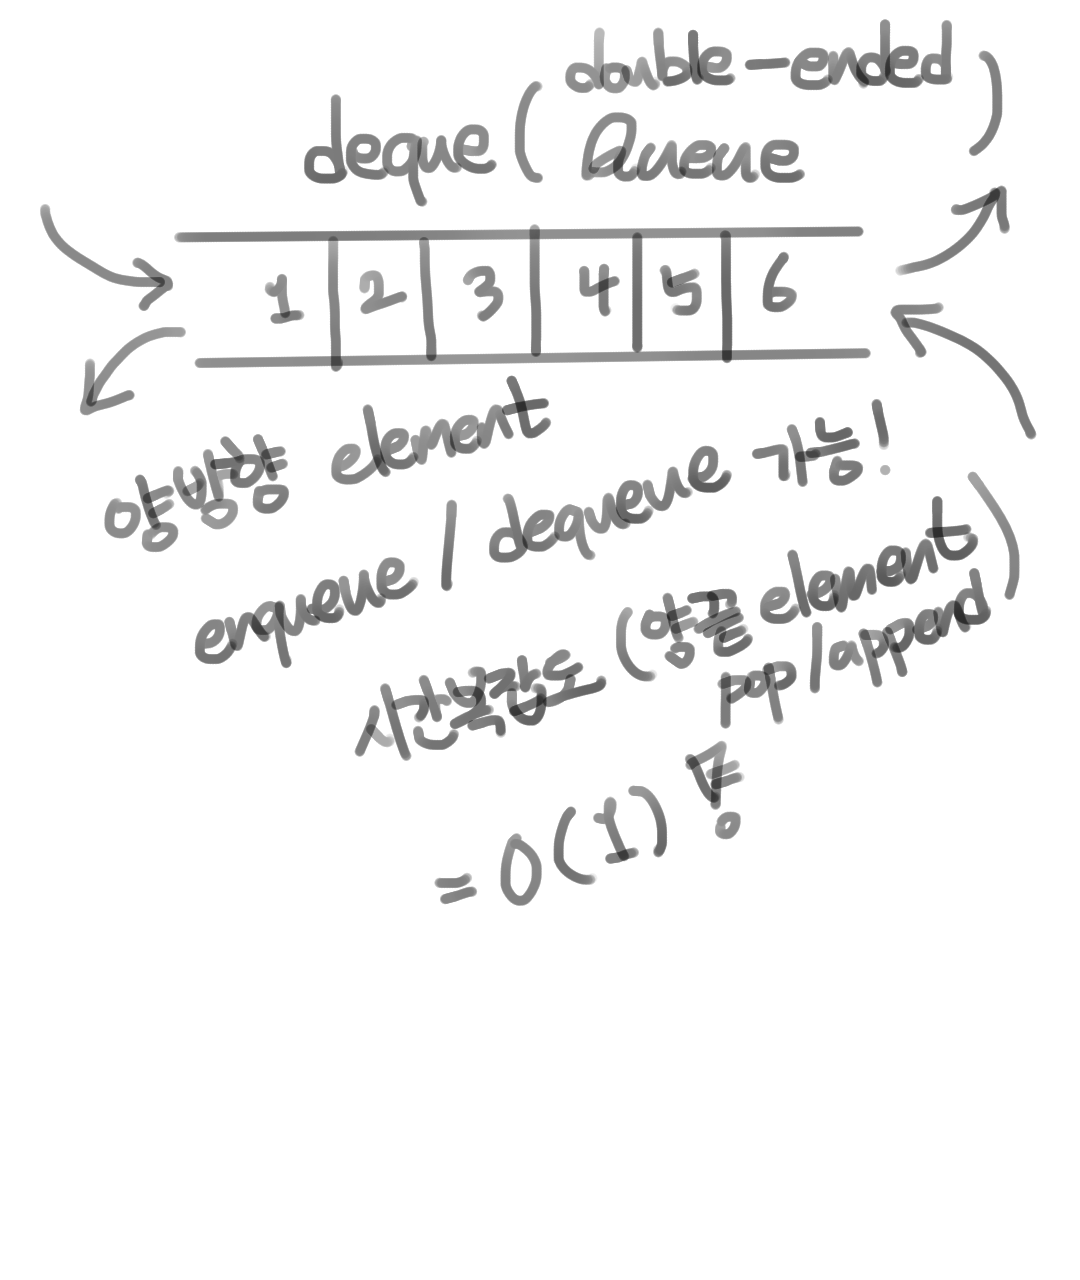 deque (double-ended
Queue)
1 2 3 4 5 6
양방향 element
enqueue / dequeue 가능!
시간복잡도 (양끝 element
pop/append)
= O(1)!